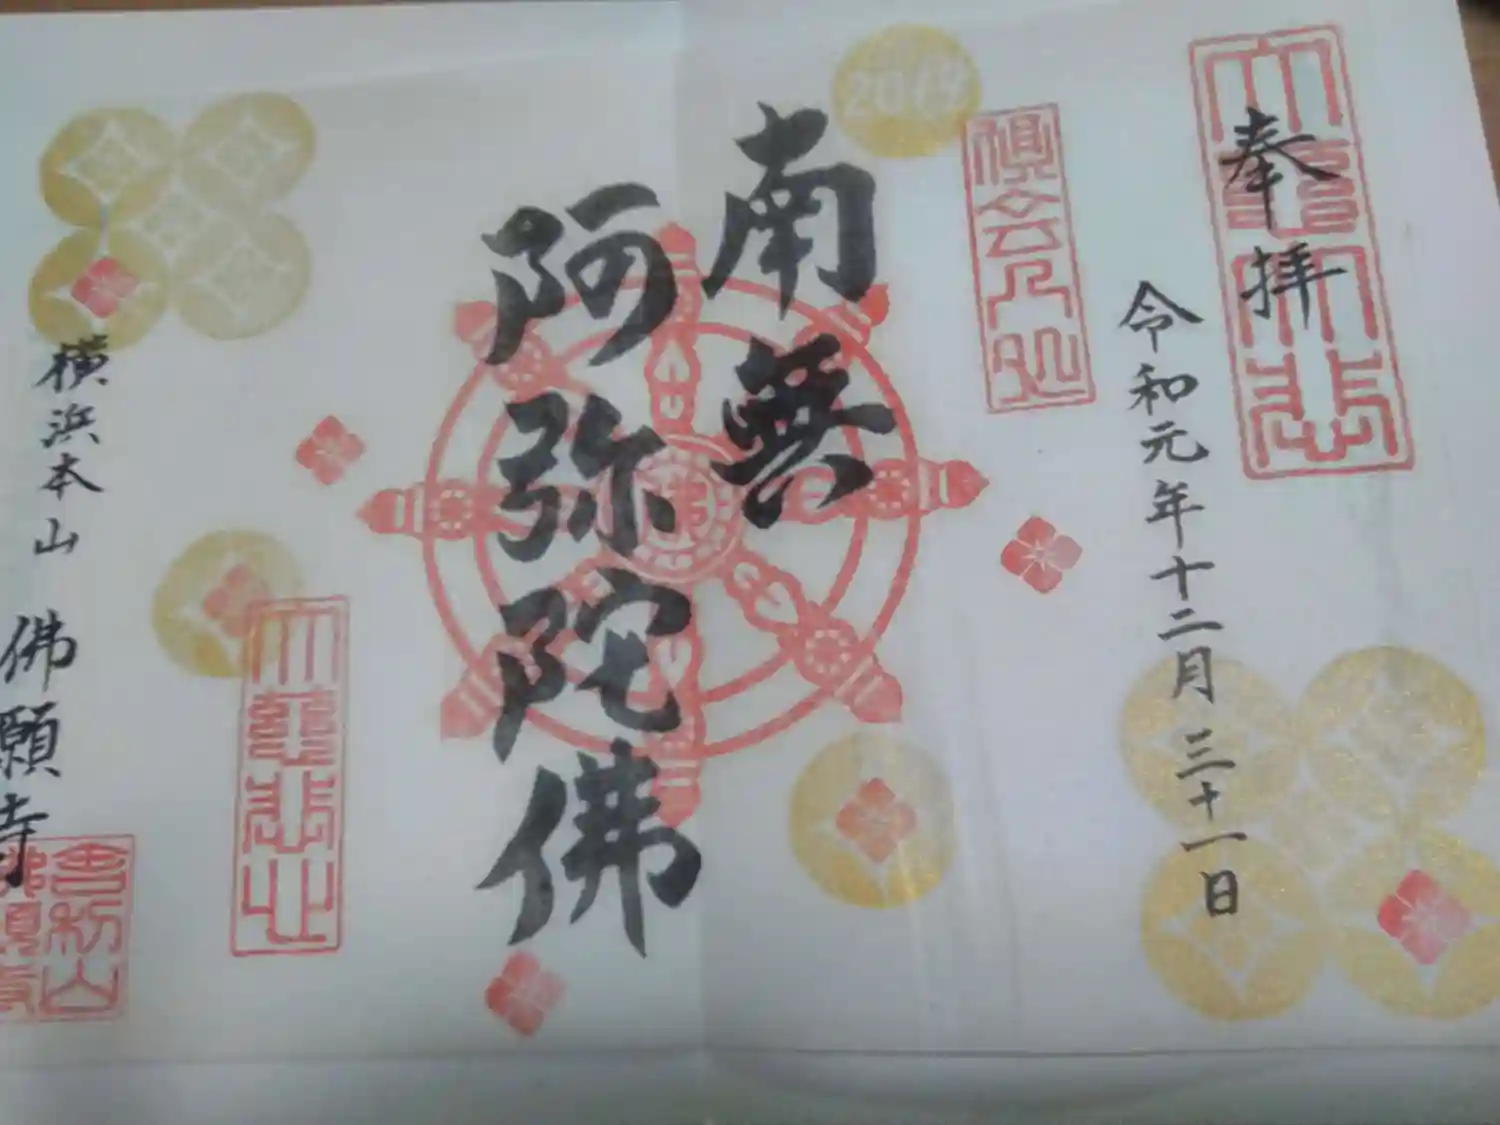 奉拝
令和元年十二月三十一日
倶会一処
2019
南無
阿弥陀佛
横浜本山 佛願寺